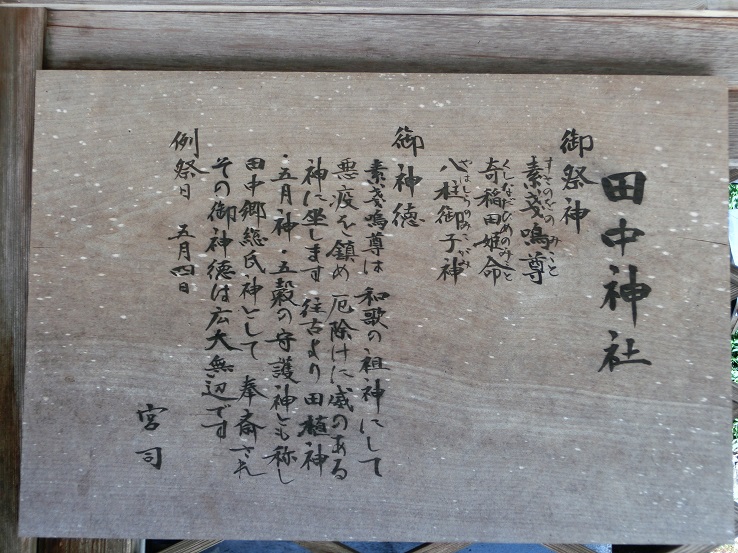 田中神社
御祭神
素戔嗚尊
すさのをのみこと
奇稲田姫命
くしなだひめのみこと
八柱御子神
やはしらのみこがみ
御神徳
素戔嗚尊は 和歌の祖神にして
悪疫を鎮め 厄除けに威のある
神に坐します 往古より田植神
・五月神・五穀の守護神とも称し
田中郷総氏神として 奉斎され
その御神徳は広大無辺です
例祭日 五月四日
宮司